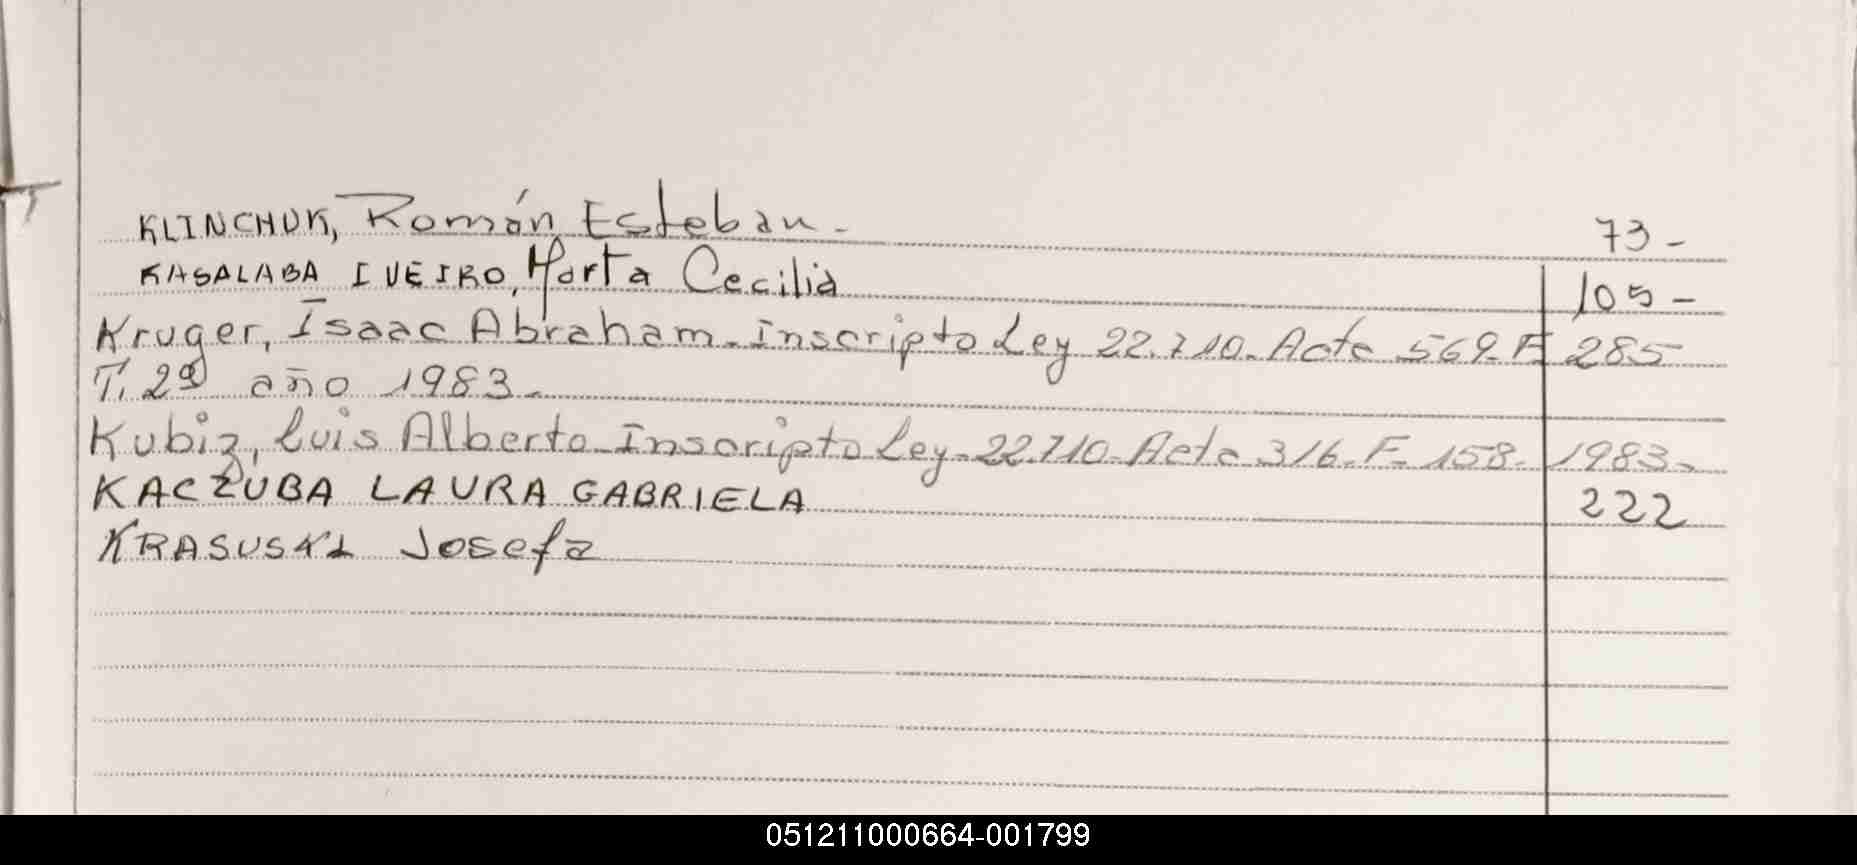 KLINCHUK, Román Esteban. 73-
KASALABA IVEIRO, Marta Cecilia 105-
Kruger, Isaac Abraham. Inscripto Ley 22.710. Acta 569. F 285
T. 2º año 1983.
Kubiz, Luis Alberto. Inscripto Ley. 22.710. Acta 316. F. 158. 1983.
KACZUBA LAURA GABRIELA 222
KRASUSKI Josefa
051211000664-001799